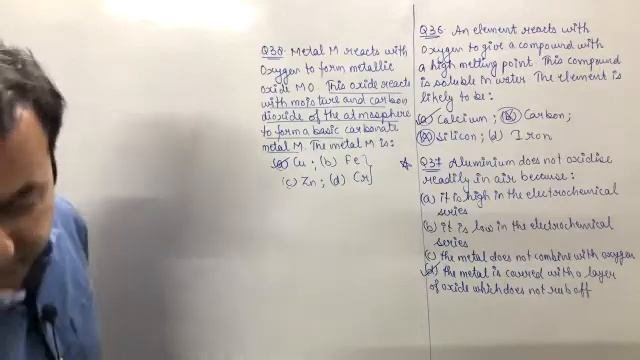 Q38. Metal M reacts with
oxygen to form metallic
oxide MO. This oxide reacts
with moisture and carbon
dioxide of the atmosphere
to form a basic carbonate
metal M. The metal M is:
(a) Cu ; (b) Fe
(c) Zn ; (d) Cr
Q36. An element reacts with
oxygen to give a compound with
a high melting point. This compound
is soluble in water. The element is
likely to be:
(a) Calcium ; (b) Carbon;
(c) Silicon ; (d) Iron
Q37. Aluminium does not oxidise
readily in air because:
(a) it is high in the electrochemical
series
(b) it is low in the electrochemical
series
(c) the metal does not combine with oxygen
(d) the metal is covered with a layer
of oxide which does not rub off